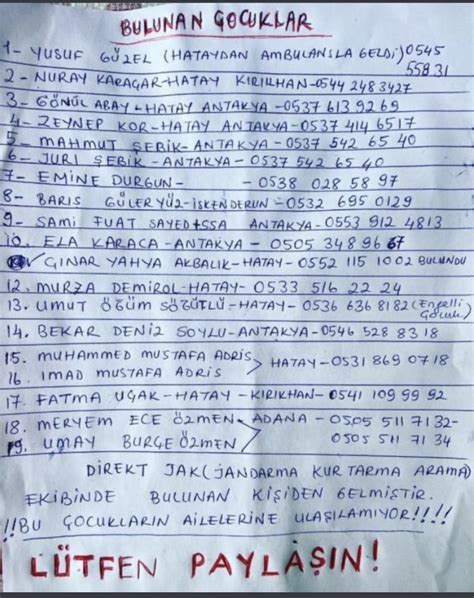 BULUNAN ÇOCUKLAR
1- YUSUF GÜZEL (HATAYDAN AMBULANSLA GELDİ) 0545
558 31
2- NURAY KARAÇAR-HATAY KIRIKHAN-0544 248 3427
3- GÖNÜL ABAY-HATAY ANTAKYA-0537 613 92 69
4- ZEYNEP KOR-HATAY ANTAKYA-0537 414 6517
5- MAHMUT ŞEBİK-ANTAKYA-0537 542 65 40
6- JURİ ŞEBİK-ANTAKYA-0537 542 65 40
7- EMİNE DURGUN- -0538 028 58 97
8- BARIŞ GÜLERYÜZ-İSKENDERUN-0532 695 0129
9- SAMİ FUAT SAYED ISSA ANTAKYA-0553 912 4813
10. ELA KARACA-ANTAKYA-0505 348 96 67
ÇINAR YAHYA AKBALIK-HATAY-0552 115 1002 BULUNDU
12. MURZA DEMİROL-HATAY-0533 516 22 24
13. UMUT ÖĞÜM SÖĞÜTLÜ-HATAY-0536 636 8182 (Engelli
Çocuk)
14. BEKAR DENİZ SOYLU-ANTAKYA-0546 528 83 18
15. MUHAMMED MUSTAFA ADRİS
HATAY-0531 869 07 18
16. IMAD MUSTAFA ADRİS
17. FATMA UÇAK-HATAY-KIRIKHAN-0541 109 99 92
18. MERYEM ECE ÖZMEN-ADANA-0505 511 71 32-
19. UMAY BURÇE ÖZMEN 0505 511 71 34
DİREKT JAK (JANDARMA KURTARMA ARAMA)
EKİBİNDE BULUNAN KİŞİDEN GELMİŞTİR.
!!BU ÇOCUKLARIN AİLELERİNE ULAŞILAMIYOR!!!!
LÜTFEN PAYLAŞIN!